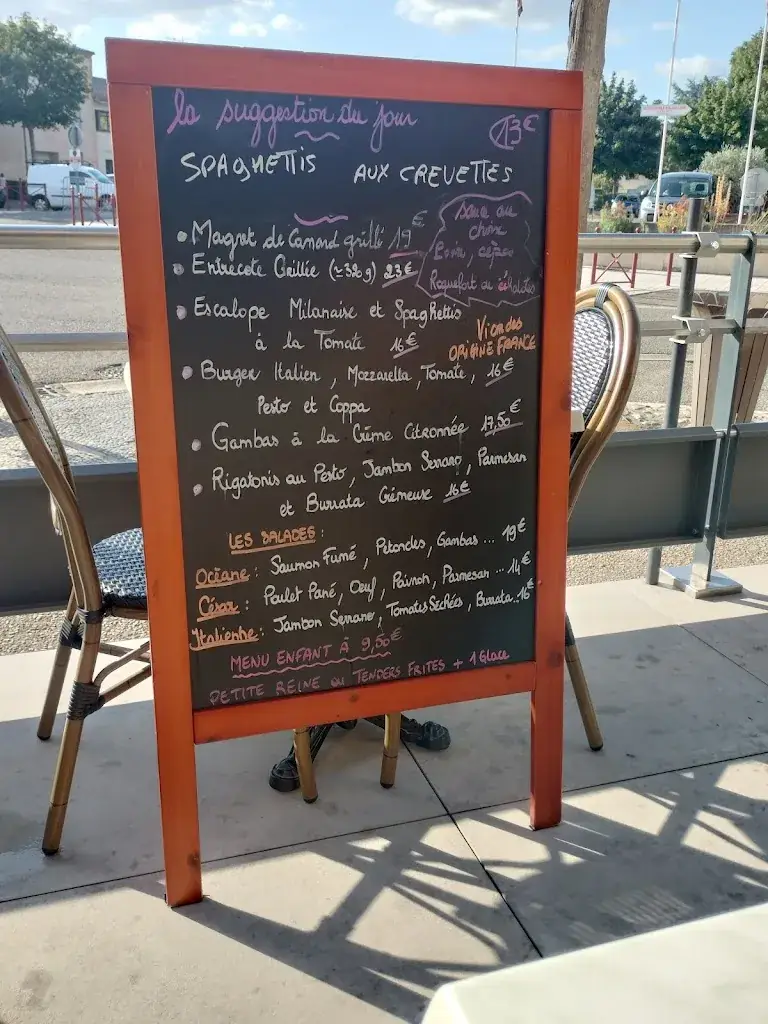 la suggestion du jour 13€
SPAGHETTIS AUX CREVETTES
• Magret de Canard grillé 19€
• Entrecote Grillée (≃320g) 23€
sauce au
choix
cèpes
Roquefort ou échalotes
• Escalope Milanaise et Spaghettis
à la Tomate 16€
Viandes
ORIGINE FRANCE
• Burger Italien, Mozzarella, Tomate, 16€
Pesto et Coppa
• Gambas à la Crème Citronnée 17,50€
• Rigatonis au Pesto, Jambon Serrano, Parmesan
et Burrata Crémeuse 16€
LES SALADES :
Océane : Saumon Fumé, Petoncles, Gambas ... 19€
César : Poulet Pané, Oeuf, Poivron, Parmesan ... 14€
Italienne : Jambon Serrano, Tomates Sechées, Burrata.. 16€
MENU ENFANT À 9,50€
PETITE REINE ou TENDERS FRITES + 1 Glace